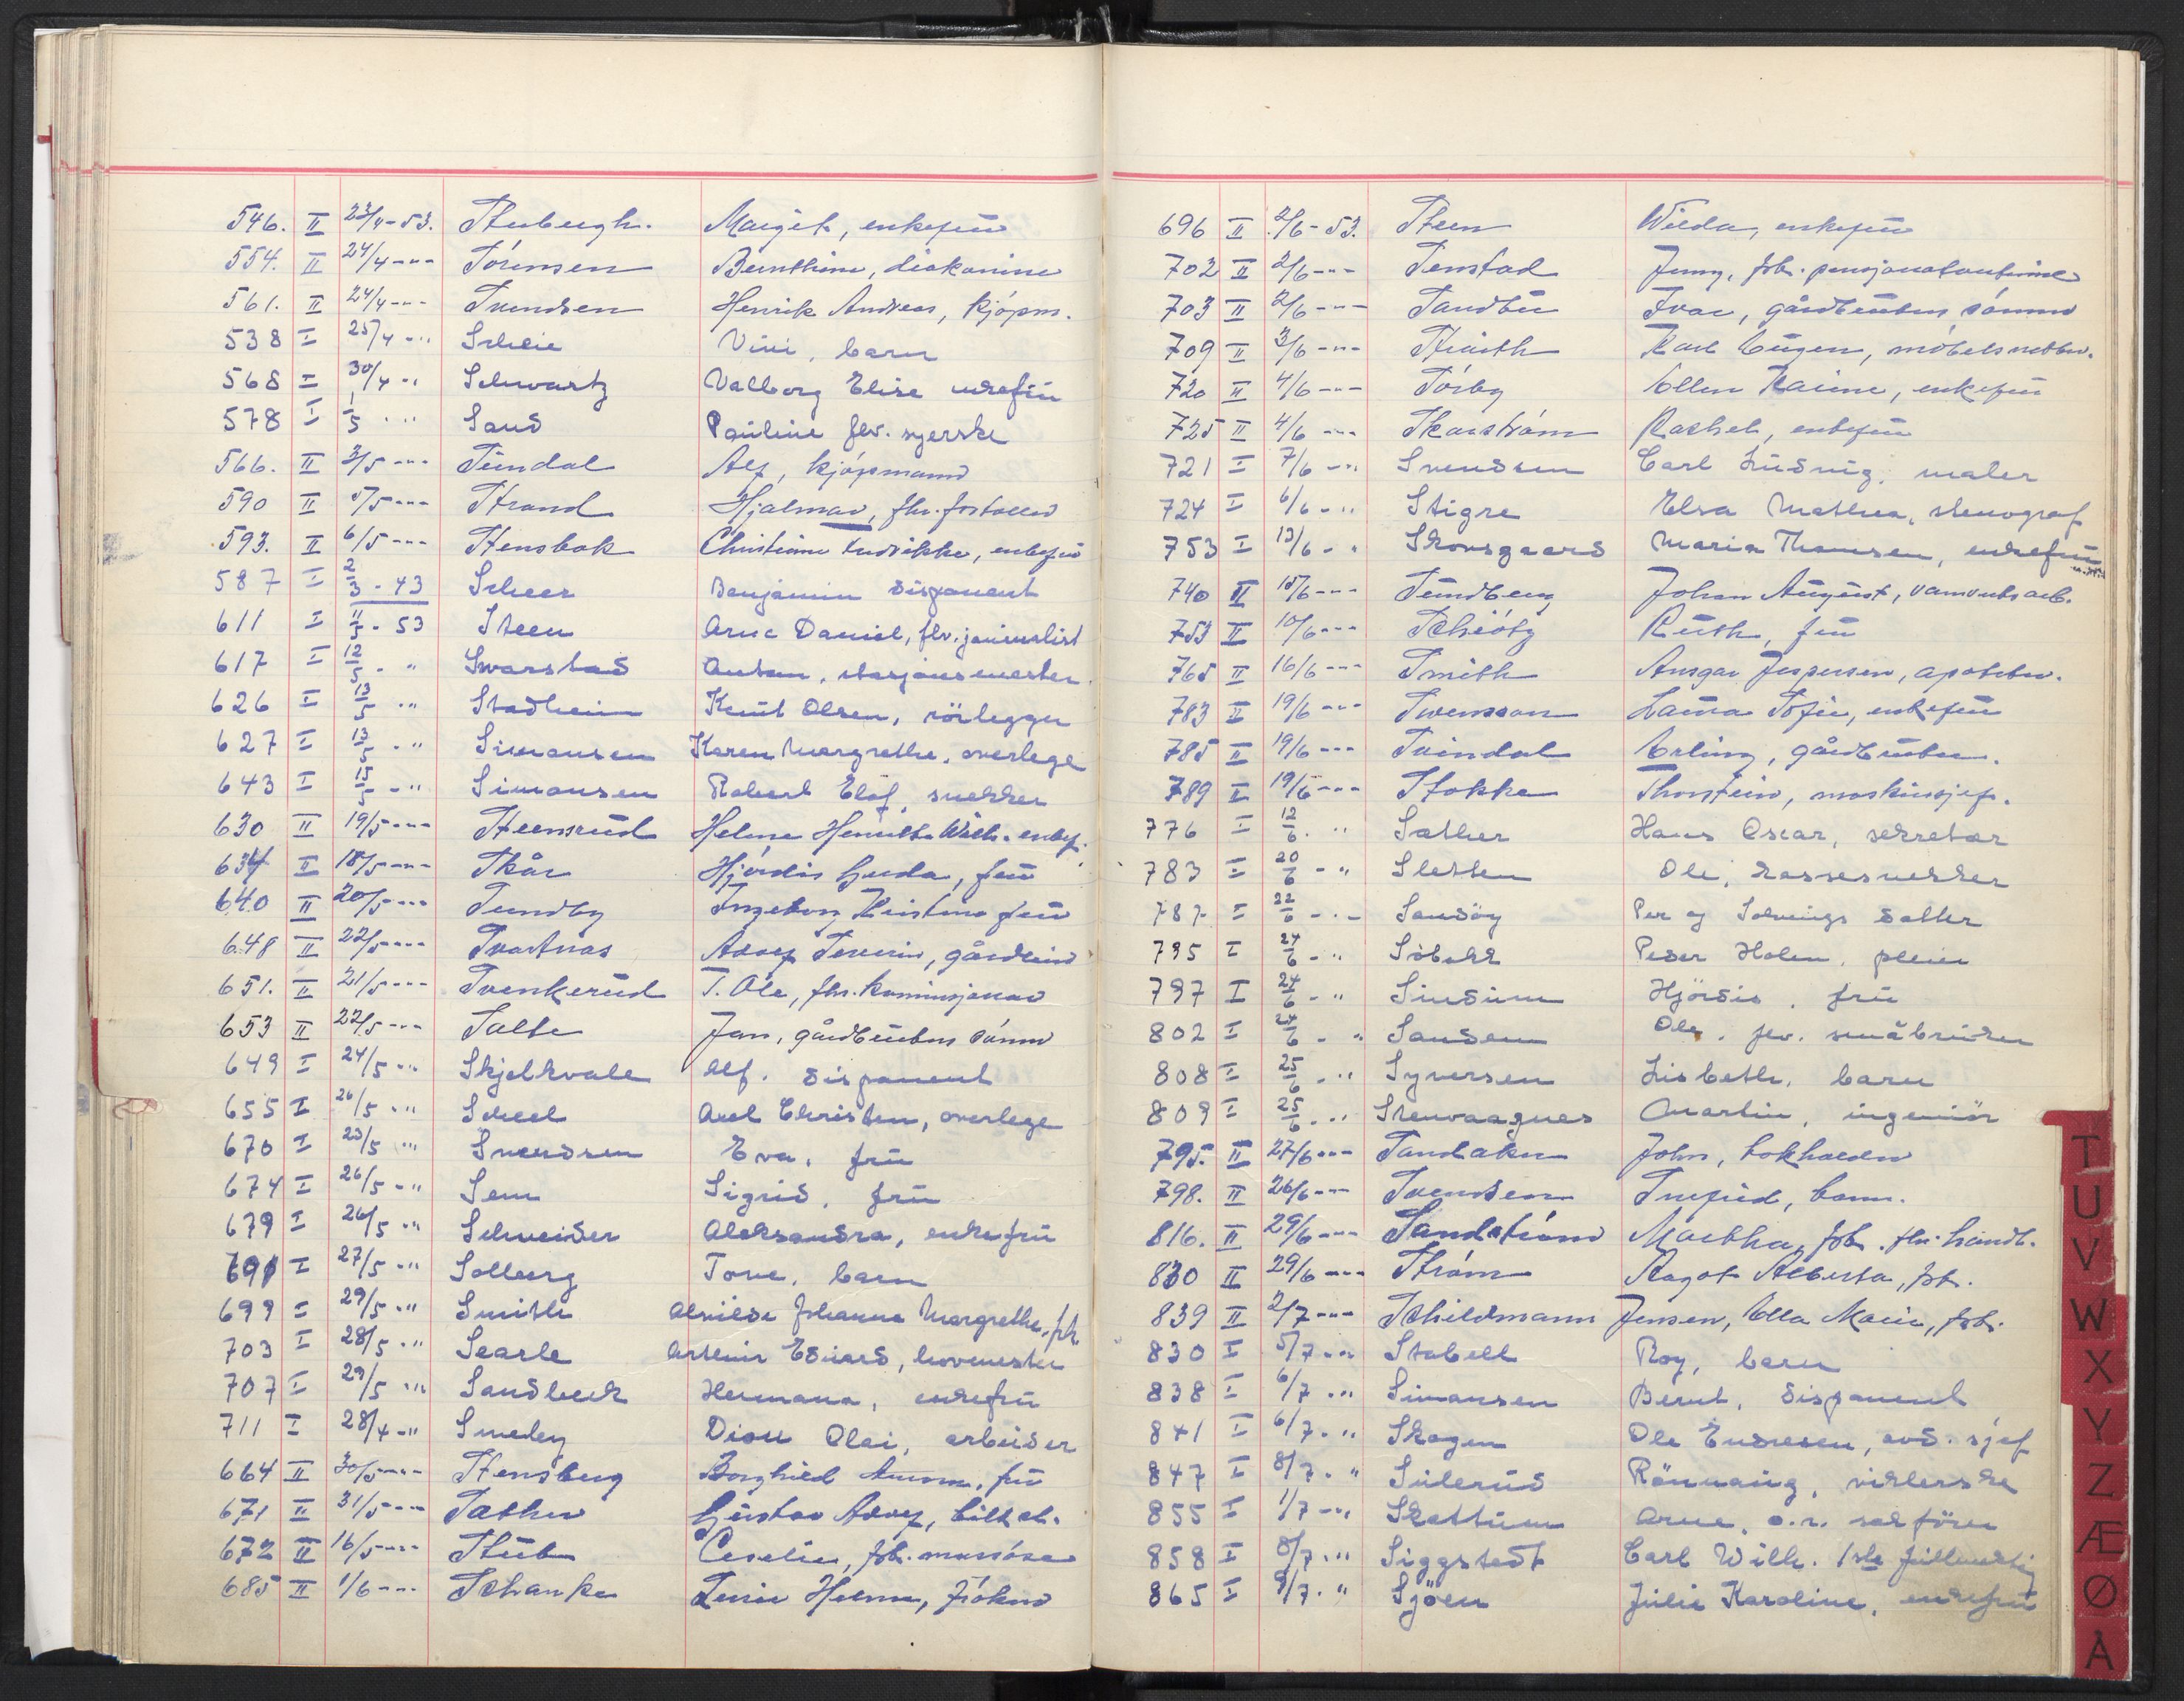 546. II 23/4-53. Stubergh. Margit, enkefrü
554. II 24/4 -"- Sörensen Bernthine, diakonisse
561. II 24/4 -"- Svendsen Henrik Andreas, kjöpm.
538 I 25/4 -" Scheie Vivi, barn
568 I 30/4 -" Schwartz Valborg Elise enkefrü
578 I 1/5 -" Sand Pauline flv. syerske
566. II 3/5 -"- Sündal Alf, kjöpmann
590 II 5/5 -"- Strand Hjalmar, fhv. forvalter
593. II 6/5 -"- Stensbak Christiane Fredrikke, enkefrü
587 I 2/3 - 43 Scheer Benjamin disponent
611 I 11/5 - 53 Steen Arne Daniel, flv. joürnalist
617 I 12/5 - " Svarstad Anton, stasjonsmester.
626 I 13/5 -" Stadheim Knüt Olsen, rörlegger
627 I 13/5 -" Simonsen Karen Margrethe, overlege
643 I 15/5 -" Simonsen Robert Elof, snekker
630 II 19/5 -"- Steensrüd Helene Henriette Wilh. enkef.
634 II 18/5 -"- Skår Hjördis Gerda, frü
640 II 20/5 -"- Sundby Ingeborg Kristine frü
648 II 22/5 -"- Svartnas Adolf Severin, gårdeier
651. II 21/5 -"- Svenkerüd T. Ole, fhv. kommisjonær
653 II 22/5 -"- Salte Jan, gårdbrükers sönn
649 I 24/5 -" Skjelkvale Alf. disponent
655 I 26/5 -" Scheel Axel Christen, overlege
670 I 23/5 -" Svendsen Eva, frü
674 I 26/5 -" Sem Sigrid, frü
679 I 26/5 -" Schneider Aleksandra, enkefrü
691 I 27/5 -" Solberg Tove, barn
699 I 29/5 -" Smith Alvilde Johanne Margrethe, frk.
703 I 28/5 -" Searle Arthur Edüard, hovmester
707 I 29/5 -" Sandbeck Hermana, enkefrü
711 I 28/4 -" Smeby Olai, arbeider
664 II 30/5 -"- Stensberg Borghild, frü
671 II 31/5 -"- Sather Güstav Adolf,
672 II 16/5 -"- Stüb Cecelie, frk. massöse
685 II 1/6 -"- Schanke Helene, fröken
696 II 2/6 - 53. Steen Wilda, enkefrü
702 II 2/6 -"- Senstad Jenny, frk. pensjonatantinne
703 II 2/6 -"- Sandbü Ivar, gårdbrükers sönn
709 II 3/6 -"- Karl Eügen, möbelsnekker.
720 II 4/6 -"- Sörby Ellen Karine, enkefrü
725 II 4/6 -"- Skarström Rachel, enkefrü
721 I 7/6 -" Svendsen Carl Lüdvig, maler
724 I 6/6 -" Stigre Elsa Mathea, stenograf
753 I 13/6 -" Skovsgaard Maria Thomsen, enkefrü
740 II 10/6 -"- Sündberg Johan Aügüst,
753 II 10/6 -"- Schiötz Rüth, frü
765 II 16/6 -"- Smith Ansgar Jespersen, apoteker.
783 II 19/6 -"- Swensson Laüra Sofie, enkefrü
785 II 19/6 -"- Svindal Erling, gårdbrüker.
789 II 19/6 -"- Stokke Thorstein, maskinsjef.
776 I 12/6 -" Sather Hans Oscar, sekretær
783 I 20/6 -" Sletten Ole, kassesnekker
787 I 22/6 -" Sandöy Per og Solveigs datter
795 I 24/6 -" Söbekk Peder Holen, pleier
797 I 24/6 -" Sindüm Hjördis, frü
802 I 24/6 -" Sandem Ole, flv. småbrüker
808 I 25/6 -" Syversen Lisbeth, barn
809 I 25/6 -" Stenvaagnes Martin, ingeniör
795. II 27/6 -"- Sandaker John, bokholder
798. II 26/6 -"- Svendsen barn.
816. II 29/6 -"- Sandström Martha, frk. fhv. handl.
830 II 29/6 -"- Ström Ragot Alberta, frk.
839 II 2/7 -"- Schildmann Jensen, Ella Marie, frk.
830 I 5/7 -" Stabell Roy, barn
838 I 6/7 -" Simonsen Bernt, disponent
841 I 6/7 -" Skogen Ole Endresen, avd. sjef
847 I 8/7 -" Sülerüd Rönnaüg, viklerske
855 I 1/7 -" Skattüm Arne, o.r. sakförer
858 I 8/7 -" Siggstedt Carl Wilh. 1ste füllmektig
865 I 9/7 -" Sjöen Jülie Karoline, enkefrü
T
U
V
W
X
Y
Z
Æ
Ø
A